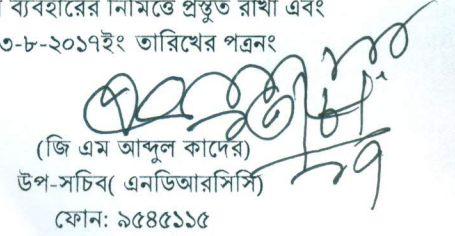 ব্যবহারের নিমিত্তে প্রস্তুত রাখা এবং
৩-৮-২০১৭ইং তারিখের পত্রনং
(জি এম আব্দুল কাদের)
উপ-সচিব( এনডিআরসিসি)
ফোন: ৯৫৪৫১১৫